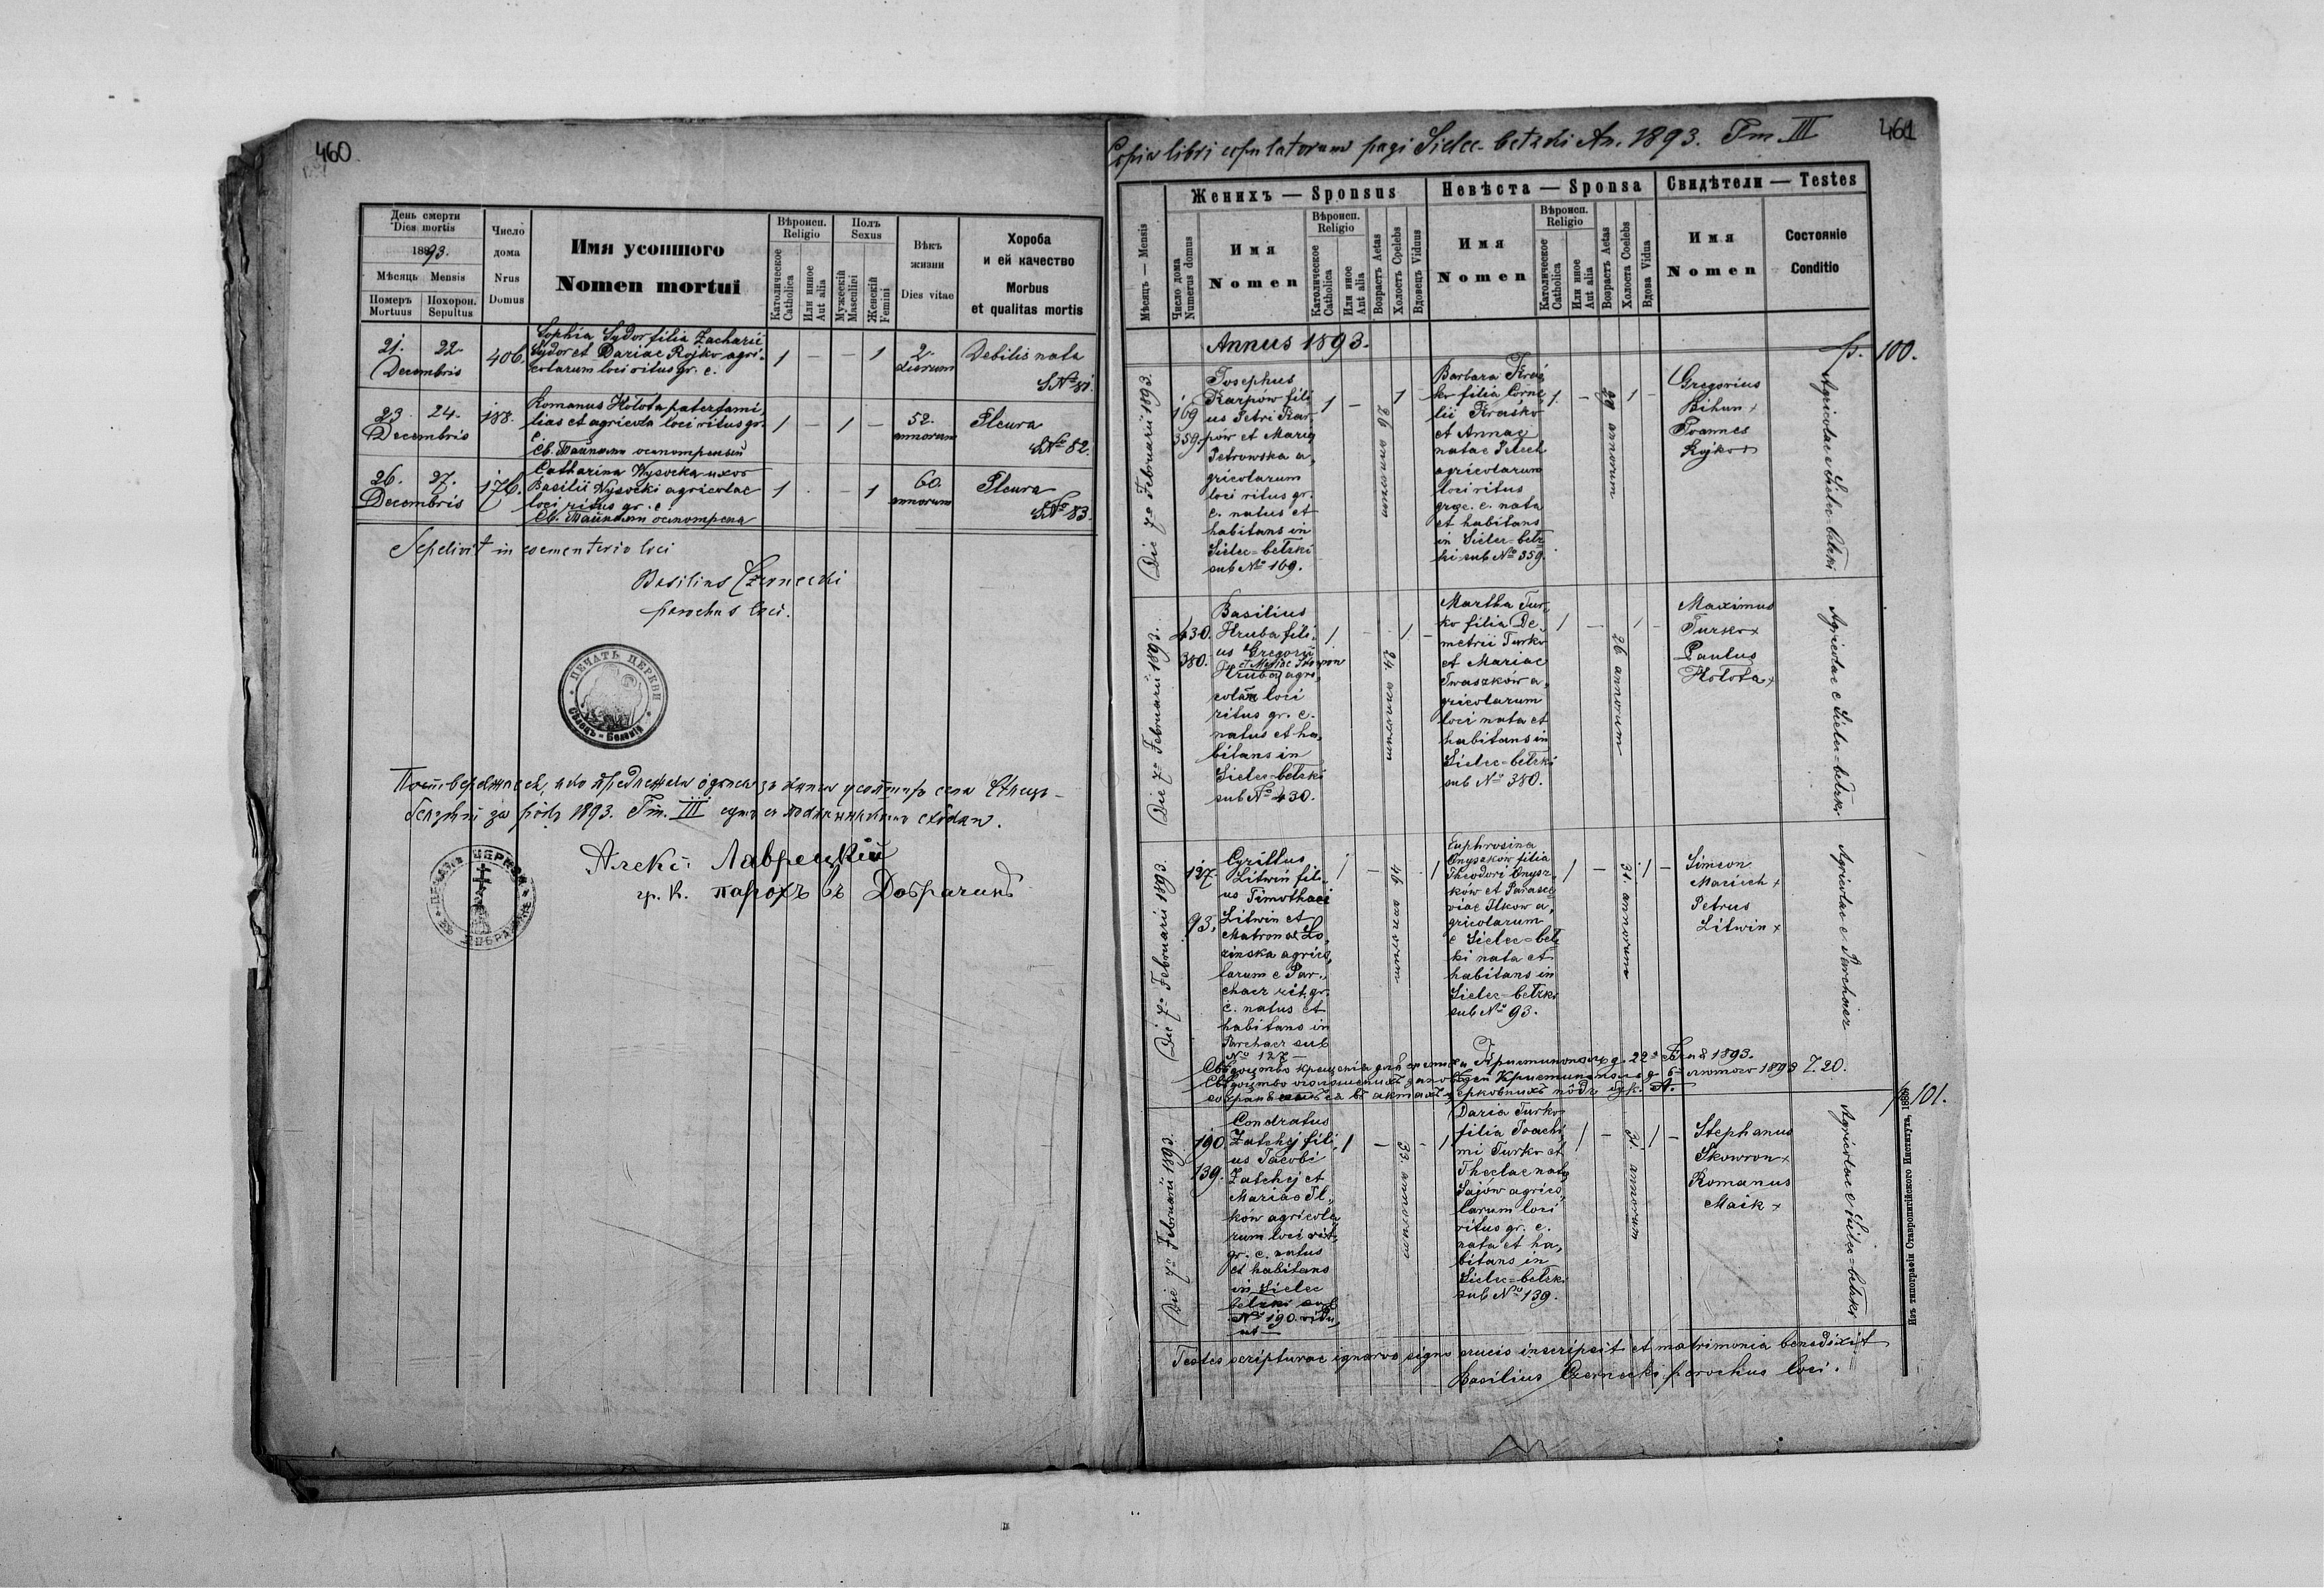 460
День смерти
Dies mortis
1893.
Мѣсяць Mensis
Померъ
Mortuus
Похорон.
Sepultus
Число
дома
Nrus
Domus
Имя усопшого
Nomen mortui
Вѣроисп.
Religio
Католическое
Catholica
Или инное
Aut alia
Полъ
Sexus
Мужескій
Masculini
Женскій
Femini
Вѣкъ
жизни
Dies vitae
Хороба
и ей качество
Morbus
et qualitas mortis
21. 22.
Decembris
406.
Sophia Sydor filia Zacharii
Sydor et Dariae Rojko agri-
colarum loci ritus gr. c.
1 — — 1
2
dierum
Debilis nata
S№ 81.
23. 24.
Decembris
188.
Romanus Hołota paterfami-
lias et agricola loci ritus gr.
c.
Св. Тайнами осмотренный
1 — 1 —
52.
annorum
Pleura
S№ 82.
26. 27.
Decembris
176.
Catharina Wysocka uxor
Basilii Wysocki agricolae
loci ritus gr. c.
Св. Тайнами осмотрена
1 . — 1
60.
annorum
Pleura
S№ 83.
Sepelivit in coementerio loci
Basilius Czernecki
parochus loci.
ПЕЧАТЬ ЦЕРКВИ
Сѣлець - Белзкій
за рôкъ 1893. Tm. III
Алекій Лаврецкій
гр. к. парохъ въ Добрачинѣ
461
Copia libri copulatorum pagi Sielec-bełzki An. 1893. Tm. III
Мѣсяць — Mensis
Женихъ — Sponsus
Число дома
Numerus domus
Имя
Nomen
Вѣроисп.
Religio
Католическое
Catholica
Или инное
Aut alia
Возрастъ Aetas
Холостъ Coelebs
Вдовець Viduus
Невѣста — Sponsa
Имя
Nomen
Вѣроисп.
Religio
Католическое
Catholica
Или инное
Aut alia
Возрастъ Aetas
Холоста Coelebs
Вдова Vidua
Свидѣтели — Testes
Имя
Nomen
Состояніе
Conditio
Annus 1893.
p. 100.
Die 7º Februarii 1893.
169
359.
Josephus
Karpow fili-
us Petri Kar-
pów et Maria
Petrowska a-
gricolarum
loci ritus gr.
c. natus et
habitans in
Sielec=bełzki
sub № 169.
1 —
26 annorum
1
Barbara Kraś
ko filia Corne
lii Kraśko
et Annae
natae Pelech
agricolarum
loci ritus
grae. c. nata
et habitans
in Sielec-bełz
ki sub № 359.
1. —
annorum
1 -
Gregorius
Bihun +
Joannes
Rojko +
Agricolae e Sielec-bełzki
Die 7º Februarii 1893.
430.
380.
Basilius
Hruba fili-
us Gregorii
et Mariae
Hruba agri-
colarum loci
ritus gr. c.
natus et ha-
bitans in
Sielec=bełzki
sub № 430.
1 -
24 annorum
1 -
Martha Tur-
ko filia De-
metrii Turko
et Mariae
Iwaszków a-
gricolarum
loci nata et
habitans in
Sielec=bełzki
sub № 380.
1 —
26 annorum
1 -
Maximus
Turko +
Paulus
Hołota +
Agricolae e Sielec=bełzki
Die 7º Februarii 1893.
127.
93.
Cyrillus
Litwin fili-
us Timothaei
Litwin et
Matronae Ło-
zinska agrico-
larum e Par-
chacz rit. gr.
c. natus et
habitans in
Parchacz sub
№ 127 —
1 —
46 annorum
1
Euphrosina
Onyszków filia
Theodori Onysz-
ków et Parasce
viae Ilkow a-
gricolarum
e Sielec=bełz
ki nata et
habitans in
Sielec=bełzki
sub № 93.
1 —
31. annorum
1 —
Simeon
Maciech +
Petrus
Litwin +
Agricolae e Parchacz
1893.
1893 Z. 20.
p. 101.
Die 7º Februarii 1893.
190.
139.
Condratus
Zatchij fili-
us Jacobi
Zatchij et
Mariae Il-
ków agricola-
rum loci rit.
gr. c. natus
et habitans
in Sielec
bełzki sub
№ 190. vidu-
us —
1 —
33. annorum
- 1
Daria Turko
filia Joachi
mi Turko et
Theclae nata
Sajów agrico-
larum loci
ritus gr. c.
nata et ha-
bitans in
Sielec=bełzki
sub № 139.
1 —
31. annorum
1 —
Stephanus
Skowron +
Romanus
Maik +
Agricolae e Sielec=bełzki
Testes scripturae ignaros signo crucis inscripsit et matrimonia benedixit
Basilius Czernecki parochus loci.
Изъ типографіи Ставропигійского Института, 1889.